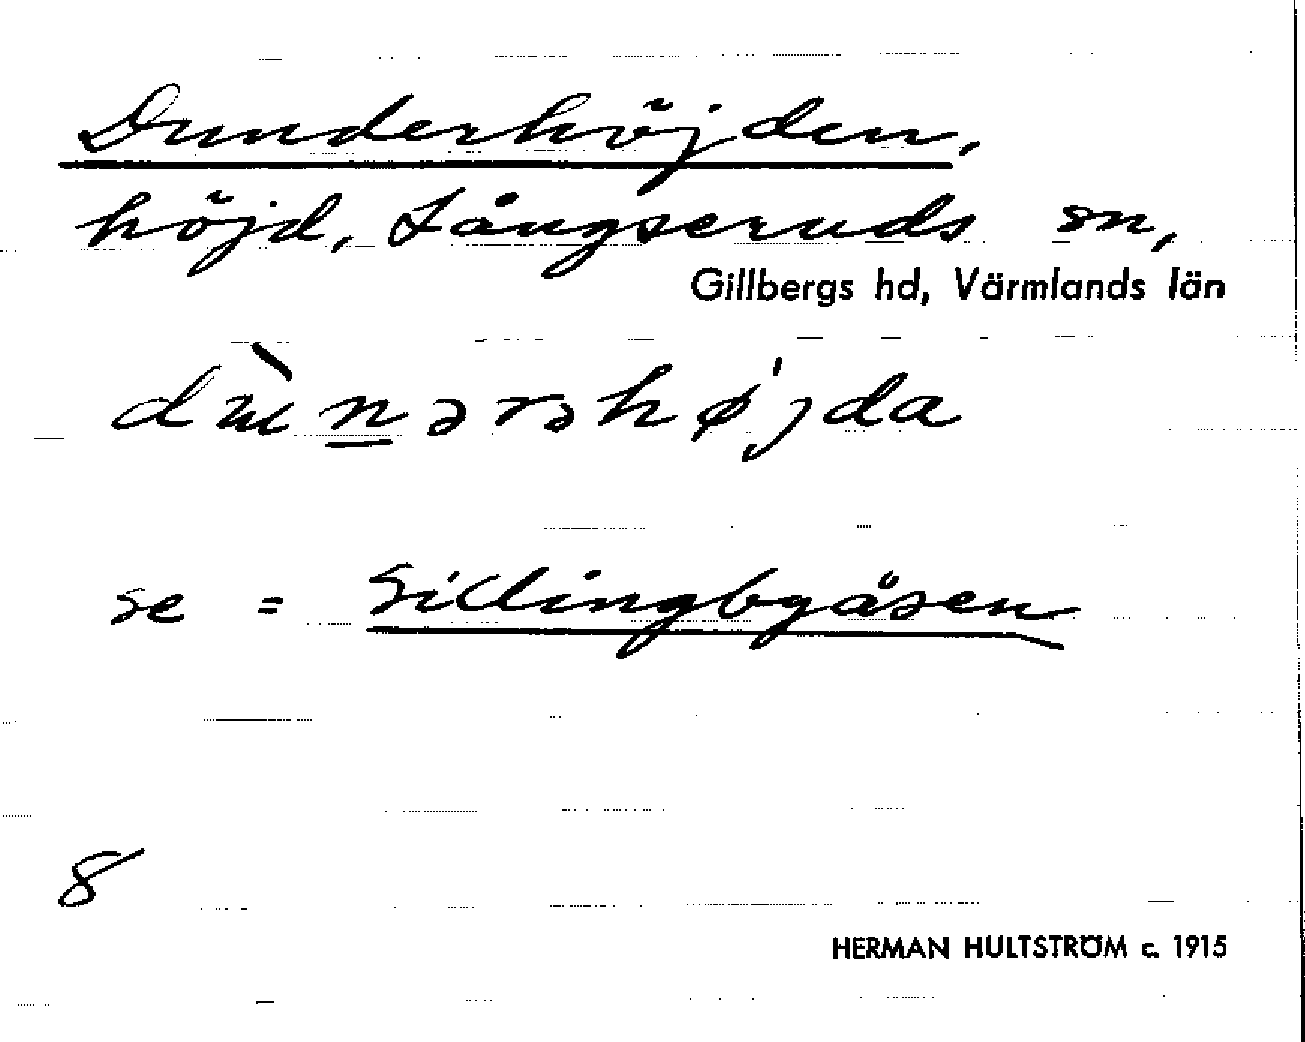 Dunderhöjden,
höjd, Långseruds sn,
Gillbergs hd, Värmlands län
dùnərəhø'jda
se = Sillingbyåsen
8
HERMAN HULTSTRÖM c. 1915